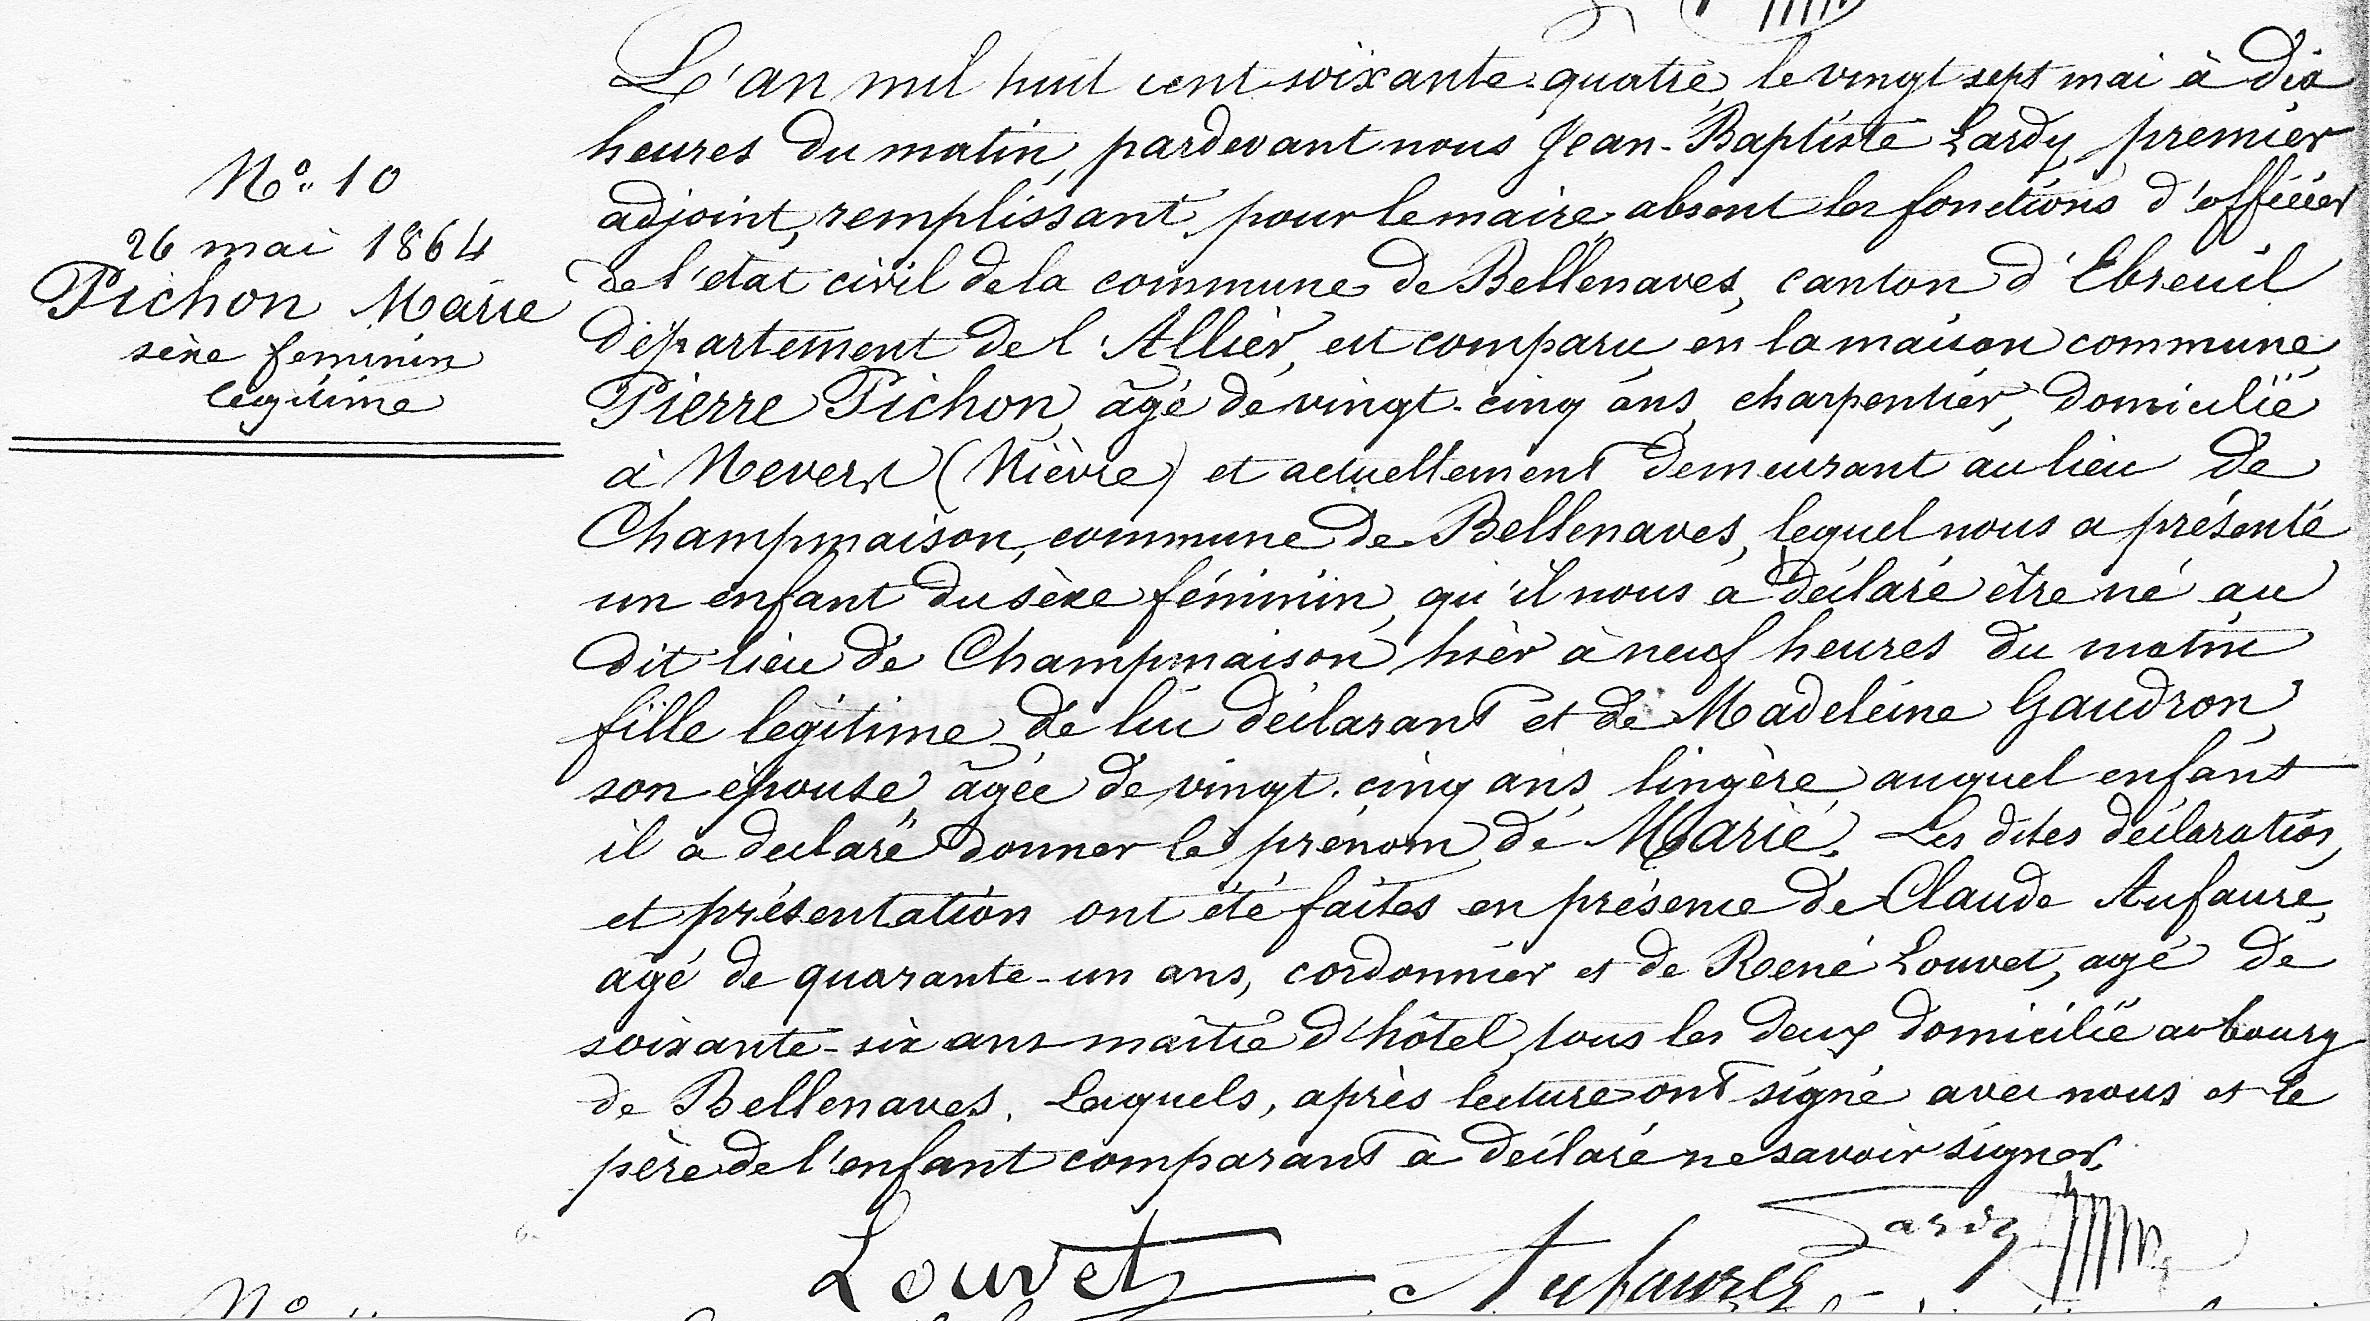 No. 10
26 mai 1864
Pichon Marie
sèxe feminin
legitime
L'an mil huit cent soixante-quatre, le vingt sept mai à dix
heures du matin, pardevant nous Jean-Baptiste Lardy, premier
adjoint, remplissant, pour le maire absent les fonctions d'officier
de l'etat civil de la commune de Bellenaves, canton d'Ebreuil
département de l'Allier, est comparu en la maison commune
Pierre Pichon, âgé de vingt-cinq ans, charpentier, domicilié
à Nevers (Nièvre) et actuellement demeurant au lieu de
Champmaison, commune de Bellenaves, lequel nous a présenté
un enfant du sèxe féminin, qu'il nous a déclaré être né au
dit lieu de Champmaison hier à neuf heures du matin
fille legitime de lui déclarant et de Madeleine Gaudron,
son épouse, âgée de vingt-cinq ans, lingère, auquel enfant
il a declaré donner le prénom de Marie. Les dites déclaration,
et présentation ont été faites en présence de Claude Aufaure,
agé de quarante-un ans, cordonnier et de René Louvet, agé de
soixante-six ans maître d'hôtel, tous les deux domicilié au bourg
de Bellenaves. Lesquels, après lecture ont signé avec nous et le
père de l'enfant comparant a déclaré ne savoir signer.
Lardy
Louvet Aufaure
No